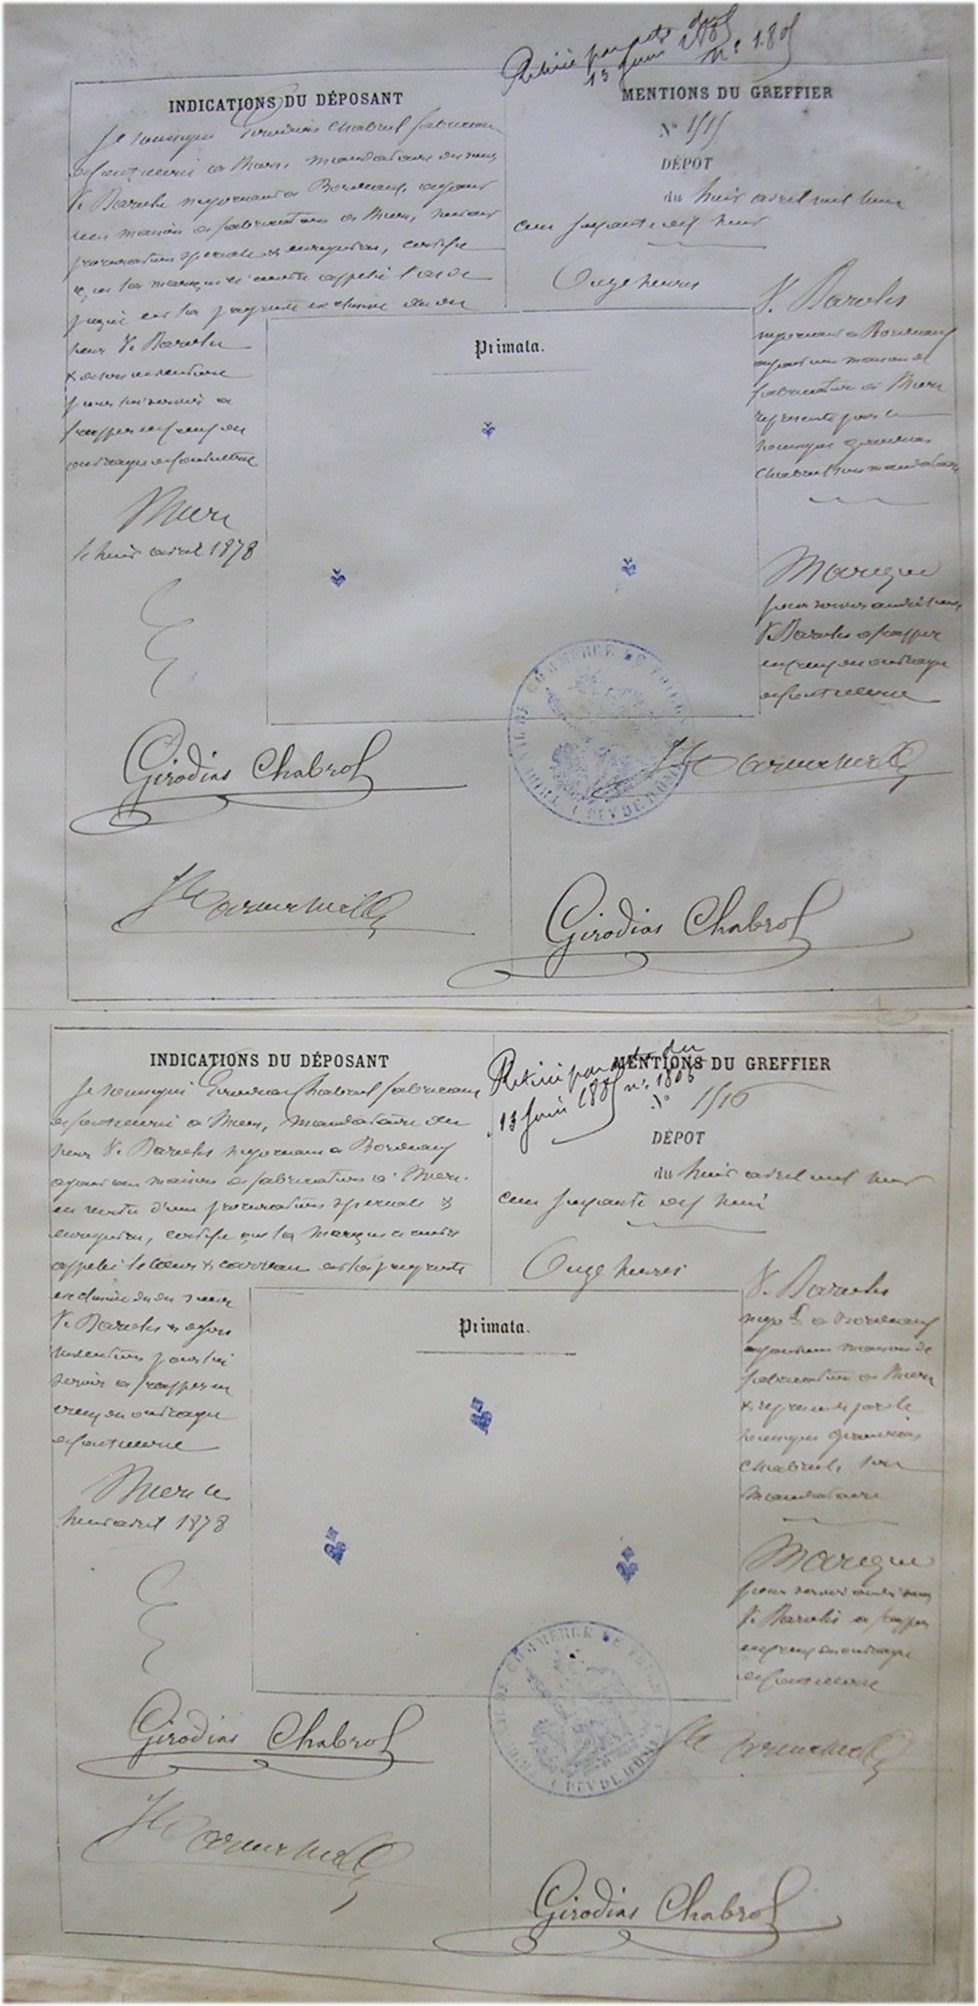 Retiré par acte du
13 Juin 188 n° 180
INDICATIONS DU DÉPOSANT
Je soussigné Girodias Chabrol fabricant
de coutellerie à Thiers, mandataire du sieur
V. Baruchi négociant à Bordeaux, ayant
une maison de fabrication à Thiers, suivant
procuration spéciale et enregistrée, certifie
que la marque ci contre appelée l'as de
pique est la propriété exclusive du dit
sieur V. Baruchi
pour lui servir à
frapper en creux des
ouvrages de coutellerie
Thiers
le huit avril 1878
Girodias Chabrol
MENTIONS DU GREFFIER
N° 1515
DÉPOT
du huit avril mil huit
cent soixante dix huit
Onze heures
Primata.
V. Baruchi
négociant à Bordeaux
ayant une maison de
fabrication à Thiers
représenté par le
soussigné Girodias
Chabrol son mandataire
Marque
pour servir audit sieur
V. Baruchi à frapper
en creux des ouvrages
de coutellerie
Girodias Chabrol
INDICATIONS DU DÉPOSANT
Je soussigné Girodias Chabrol fabricant
de coutellerie à Thiers, mandataire du
sieur V. Baruchi négociant à Bordeaux
ayant une maison de fabrication à Thiers
en vertu d'une procuration spéciale et
enregistrée, certifie que la marque ci contre
appelée le cœur et carreau est la propriété
exclusive du dit sieur
V. Baruchi et de ses
pour lui
servir à frapper en
creux des ouvrages
de coutellerie
Thiers le
huit avril 1878
Girodias Chabrol
Retiré par acte du
13 Juin 188 n° 1806
MENTIONS DU GREFFIER
N° 1516
DÉPOT
du huit avril mil huit
cent soixante dix huit
Onze heures
Primata.
V. Baruchi
négt à Bordeaux
ayant une maison de
fabrication à Thiers
et représenté par le
soussigné Girodias
Chabrol, son
mandataire
Marque
pour servir audit sieur
V. Baruchi à frapper
en creux des ouvrages
de coutellerie
Girodias Chabrol